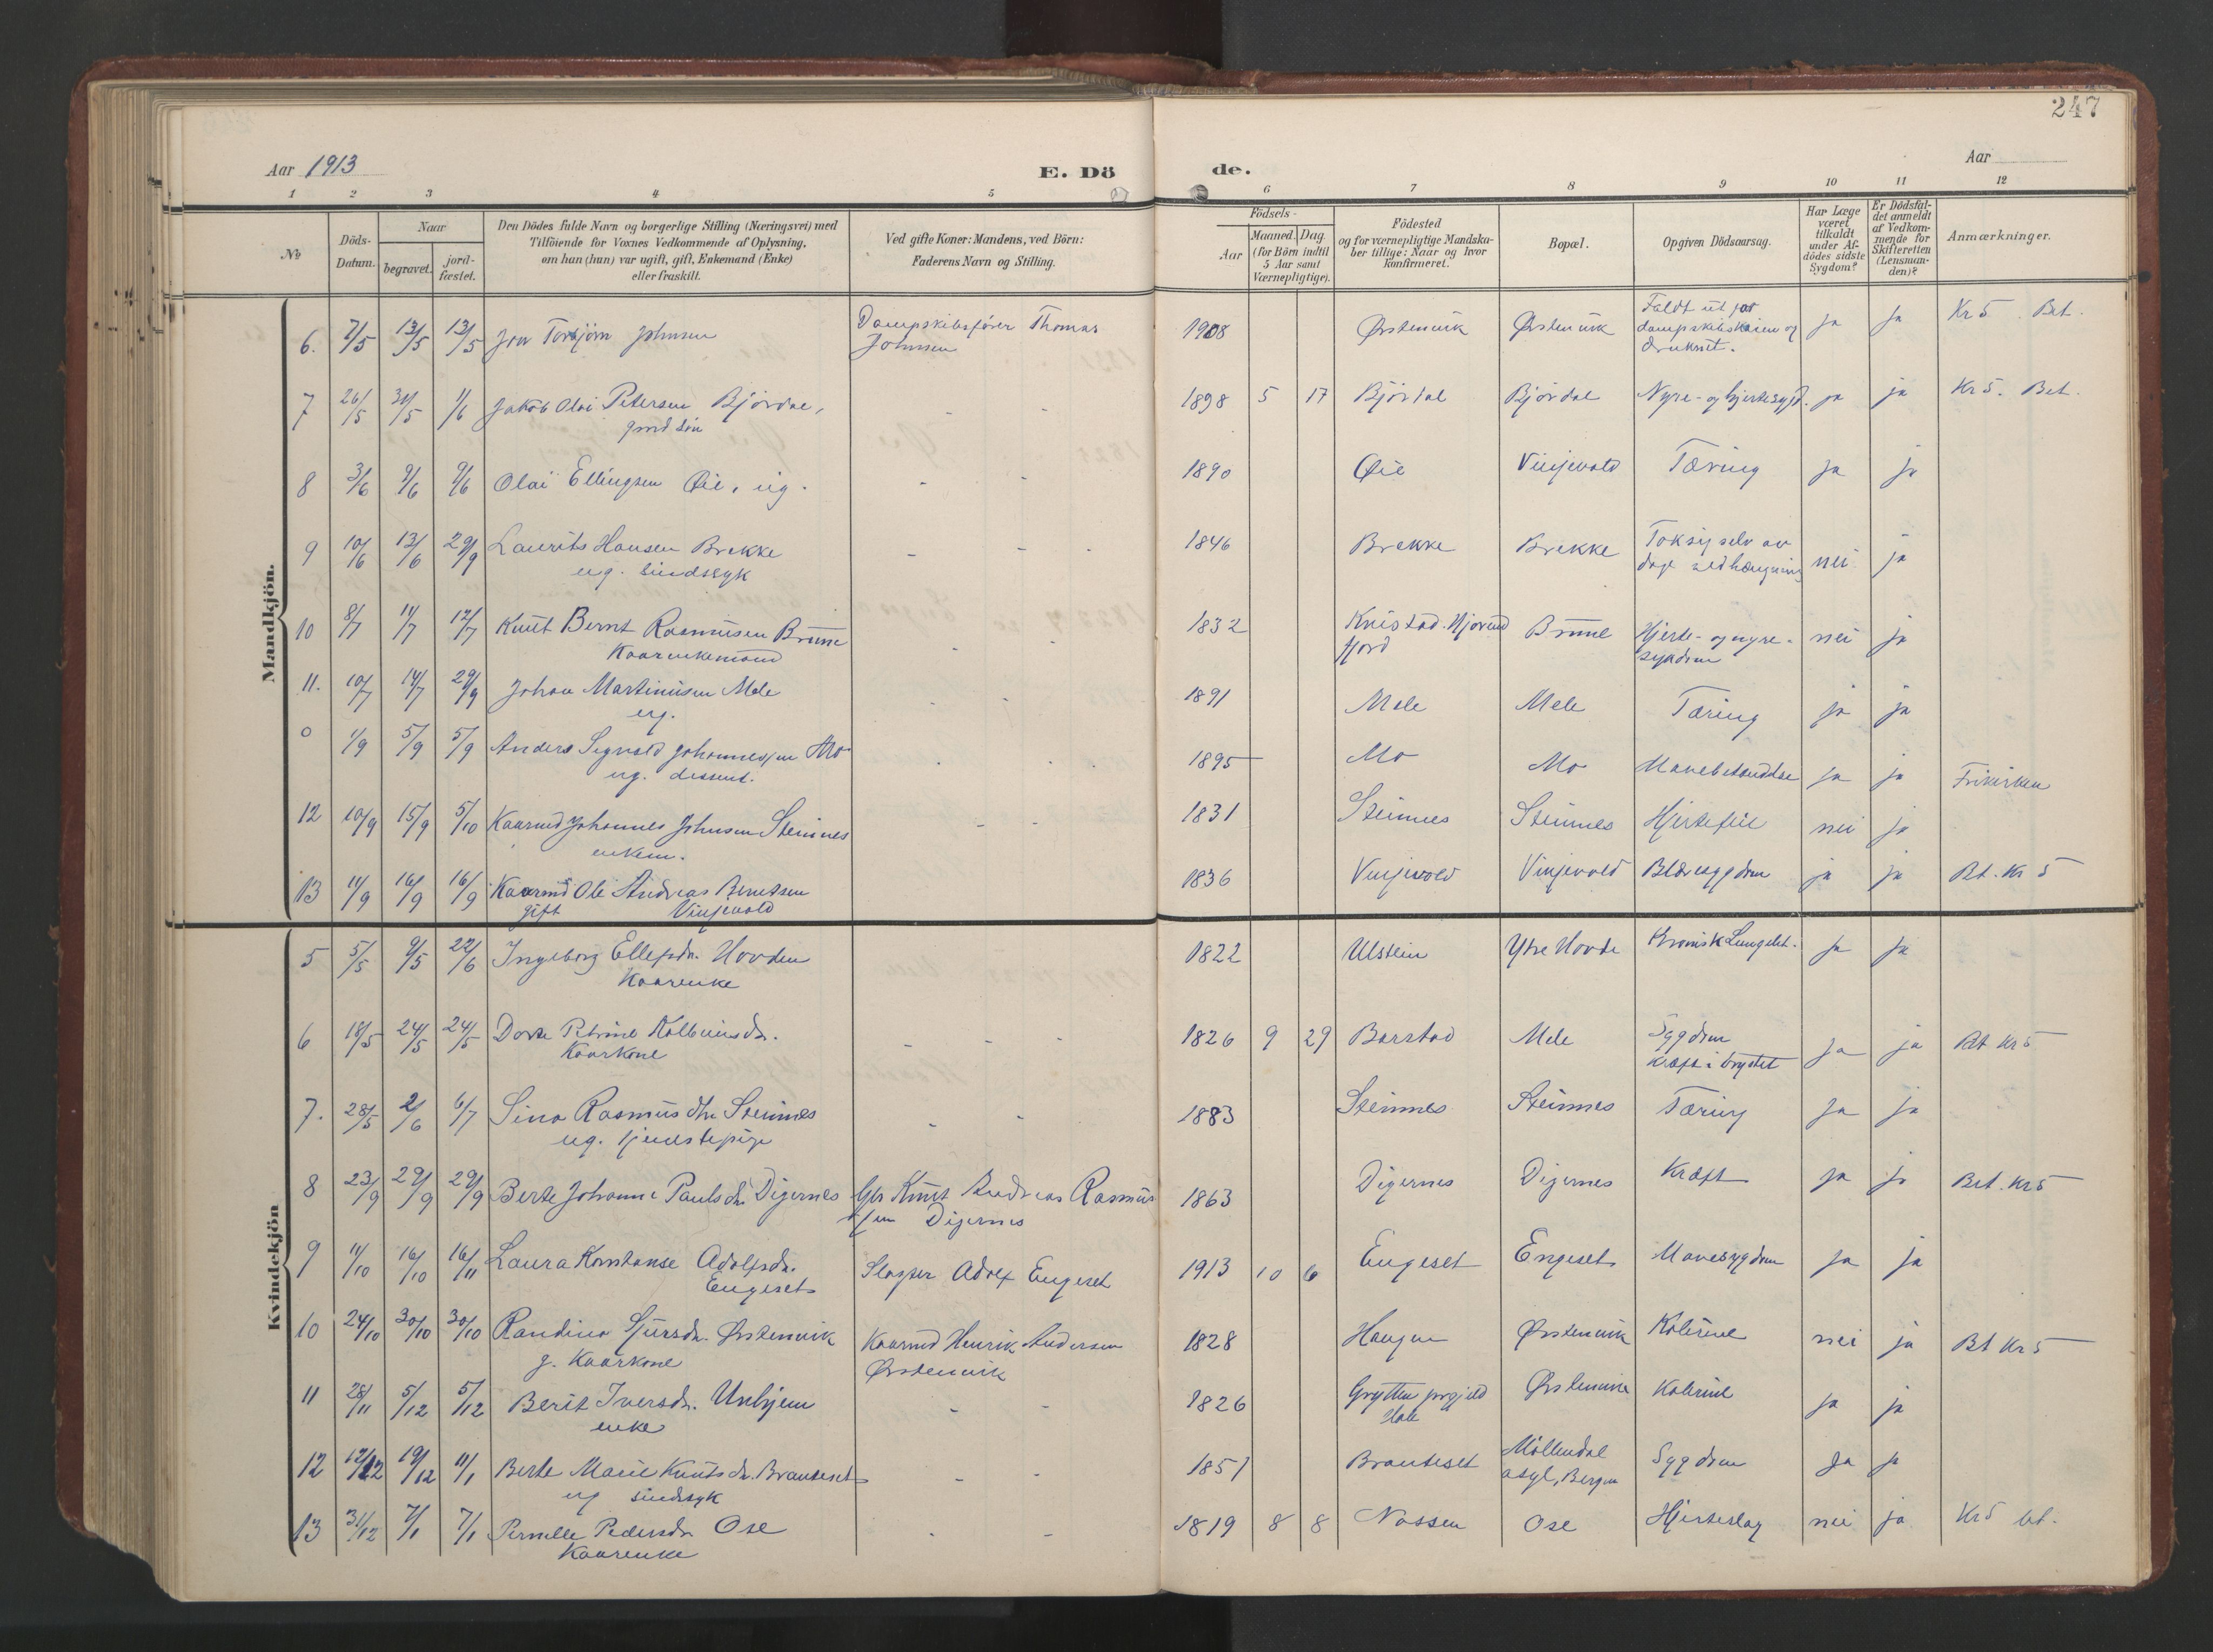 247
Aar 1913
E. Dö
de.
Aar
1 2 3 4 5 6 7 8 9 10 11 12
No
Döds-Datum.
Naar
begravet.
jord-fæstet.
Den Dödes fulde Navn og borgerlige Stilling (Næringsvei) med
Tilföiende for Voxnes Vedkommende af Oplysning,
om han (hun) var ugift, gift, Enkemand (Enke)
eller fraskilt.
Ved gifte Koner: Mandens, ved Börn:
Faderens Navn og Stilling.
Födsels-
Aar
Maaned. Dag
(for Börn indtil
5 Aar samt
Værnepligtige).
Födested
og for værnepligtige Mandska-
ber tillige: Naar og hvor
konfirmeret.
Bopæl.
Opgiven Dödsaarsag.
Har Læge
været
tilkaldt
under Af-
dödes sidste
Sygdom?
Er Dödsfal-
det anmeldt
af Vedkom-
mende for
Skifteretten
(Lensman-
den)?
Anmærkninger.
Mandkjön.
6. 7/5 13/5 13/5 Jon Torbjørn Johnsen Dampskibsfører Thomas 1908 Ørstenvik Ørstenvik Faldt ut for ja ja Kr 5 Bet.
Johnsen dampskibskaien og
druknet.
7 26/5 31/5 1/6 Jakob Olai Petersen Bjørdal, - - 1898 5 17 Bjørdal Bjørdal Nyre- og hjertesygd. ja ja Kr 5. Bet.
gmd søn
8 3/6 9/6 9/6 Olai Ellingsen Øie, ug. - - 1890 Øie Vinjevold Tæring ja ja
9 10/6 13/6 29/9 Laurits Hansen Brekke - - 1846 Brekke Brekke Tok sig selv av nei ja
ug. sindssyk dage ved hængning
10 8/7 11/7 12/7 Knut Bernt Rasmusen Brune - - 1832 Knistad. Hjørund Brune Hjerte- og nyre- nei ja
Kaarenkemand fjord sygdom
11. 10/7 14/7 29/9 Johan Martinusen Mele - - 1891 Mele Mele Tæring ja ja
ug.
0 1/9 5/9 5/9 Anders Sigvald Johannessen Mo - - 1895 Mo Mo Mavebetændelse ja ja Frikirken
ug. dissent.
12 10/9 15/9 5/10 Kaarmd Johannes Johnsen Steinnes - - 1831 Steinnes Steinnes Hjertefeil nei ja
enkem.
13 11/9 16/9 16/9 Kaarmd Ole Andreas Berntsen 1836 Vinjevold Vinjevold Blæresygdom ja ja Bt. Kr 5
gift Vinjevold
Kvindekjön
5 5/5 9/5 22/6 Ingeborg Ellefsdr. Hovden 1822 Ulstein Ytre Hovde Kronisk Lungebet. ja ja
Kaarenke
6 18/5 24/5 24/5 Dorte Petrine Kolbeinsdr. - - 1826 9 29 Barstad Mele Sygdom ja ja Bt Kr 5
Kaarkone Kræft i brystet
7. 28/5 2/6 6/7 Sina Rasmusdtr Steinnes - - 1883 Steinnes Steinnes Tæring ja ja
ug. tjenestepige
8 23/9 29/9 29/9 Berte Johanne Paulsdr. Digernes Gbr Knut Andreas Rasmus 1863 Digernes Digernes Kræft ja ja Bet. Kr 5
sen Digernes
9 11/10 16/10 16/11 Laura Konstanse Adolfsdr. Slagter Adolf Engeset 1913 10 6 Engeset Engeset Mavesygdom ja ja
Engeset
10 24/10 30/10 30/10 Randina Sjursdr. Ørstenvik Kaarmd Henrik Andersen 1828 Haugen Ørstenvik Kolerine nei ja Bt Kr 5
g. Kaarkone Ørstenvik
11 28/11 5/12 5/12 Berit Iversdr. Unhjem - - 1826 Grytten prgjeld Ørstenvik Kolerine ja ja
enke
12 12/12 19/12 11/1 Berte Marie Knutsdr. Brauteset - - 1851 Brauteset Möllendal Sygdom ja ja
ug sindssyk asyl, Bergen
13 31/12 7/1 7/1 Pernille Pedersdr Ose - - 1819 8 8 Nossen Ose Hjerteslag nei ja Kr 5 bt.
Kaarenke